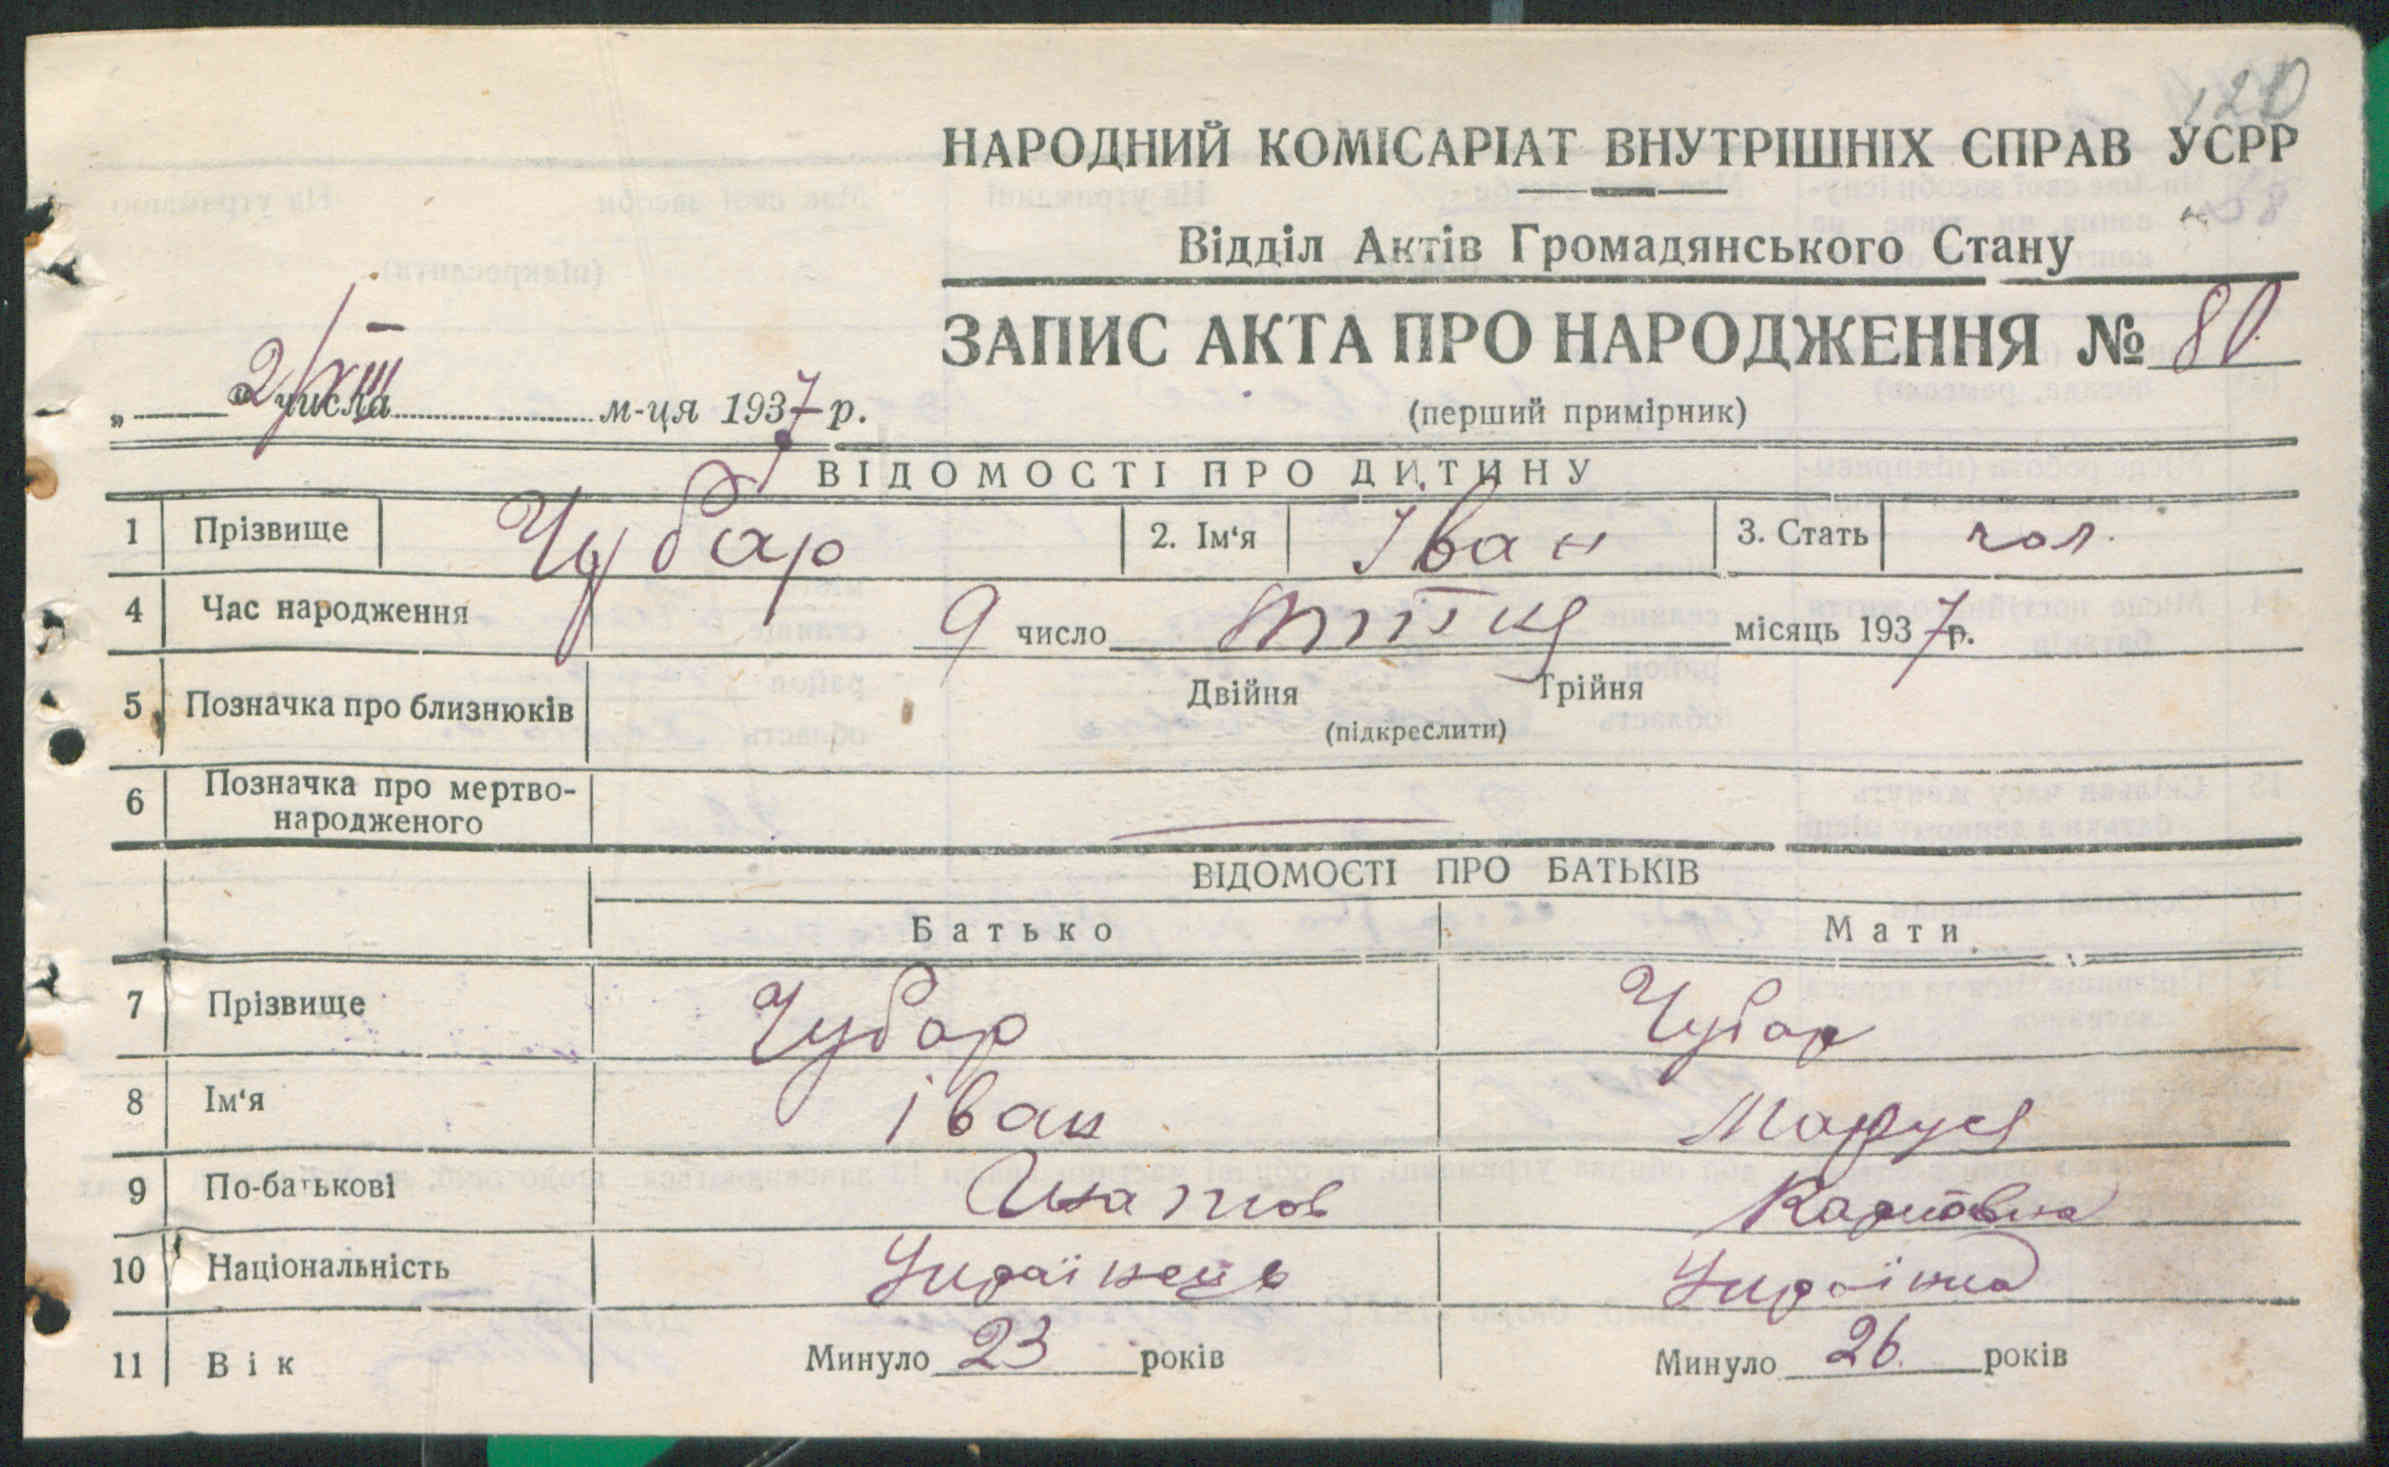 120
НАРОДНИЙ КОМІСАРІАТ ВНУТРІШНІХ СПРАВ УСРР
Відділ Актів Громадянського Стану
ЗАПИС АКТА ПРО НАРОДЖЕННЯ № 80
(перший примірник)
„ “ 2/XIII числа м-ця 1937 р.
ВІДОМОСТІ ПРО ДИТИНУ
1 Прізвище Чубар 2. Ім‘я Іван 3. Стать чол.
4 Час народження 9 число місяць 1937 р.
5 Позначка про близнюків Двійня Трійня
(підкреслити)
6 Позначка про мертво-
народженого
ВІДОМОСТІ ПРО БАТЬКІВ
Батько Мати
7 Прізвище Чубар Чубар
8 Ім‘я Іван Маруся
9 По-батькові Карповна
10 Національність Українець Українка
11 Вік Минуло 23 років Минуло 26 років